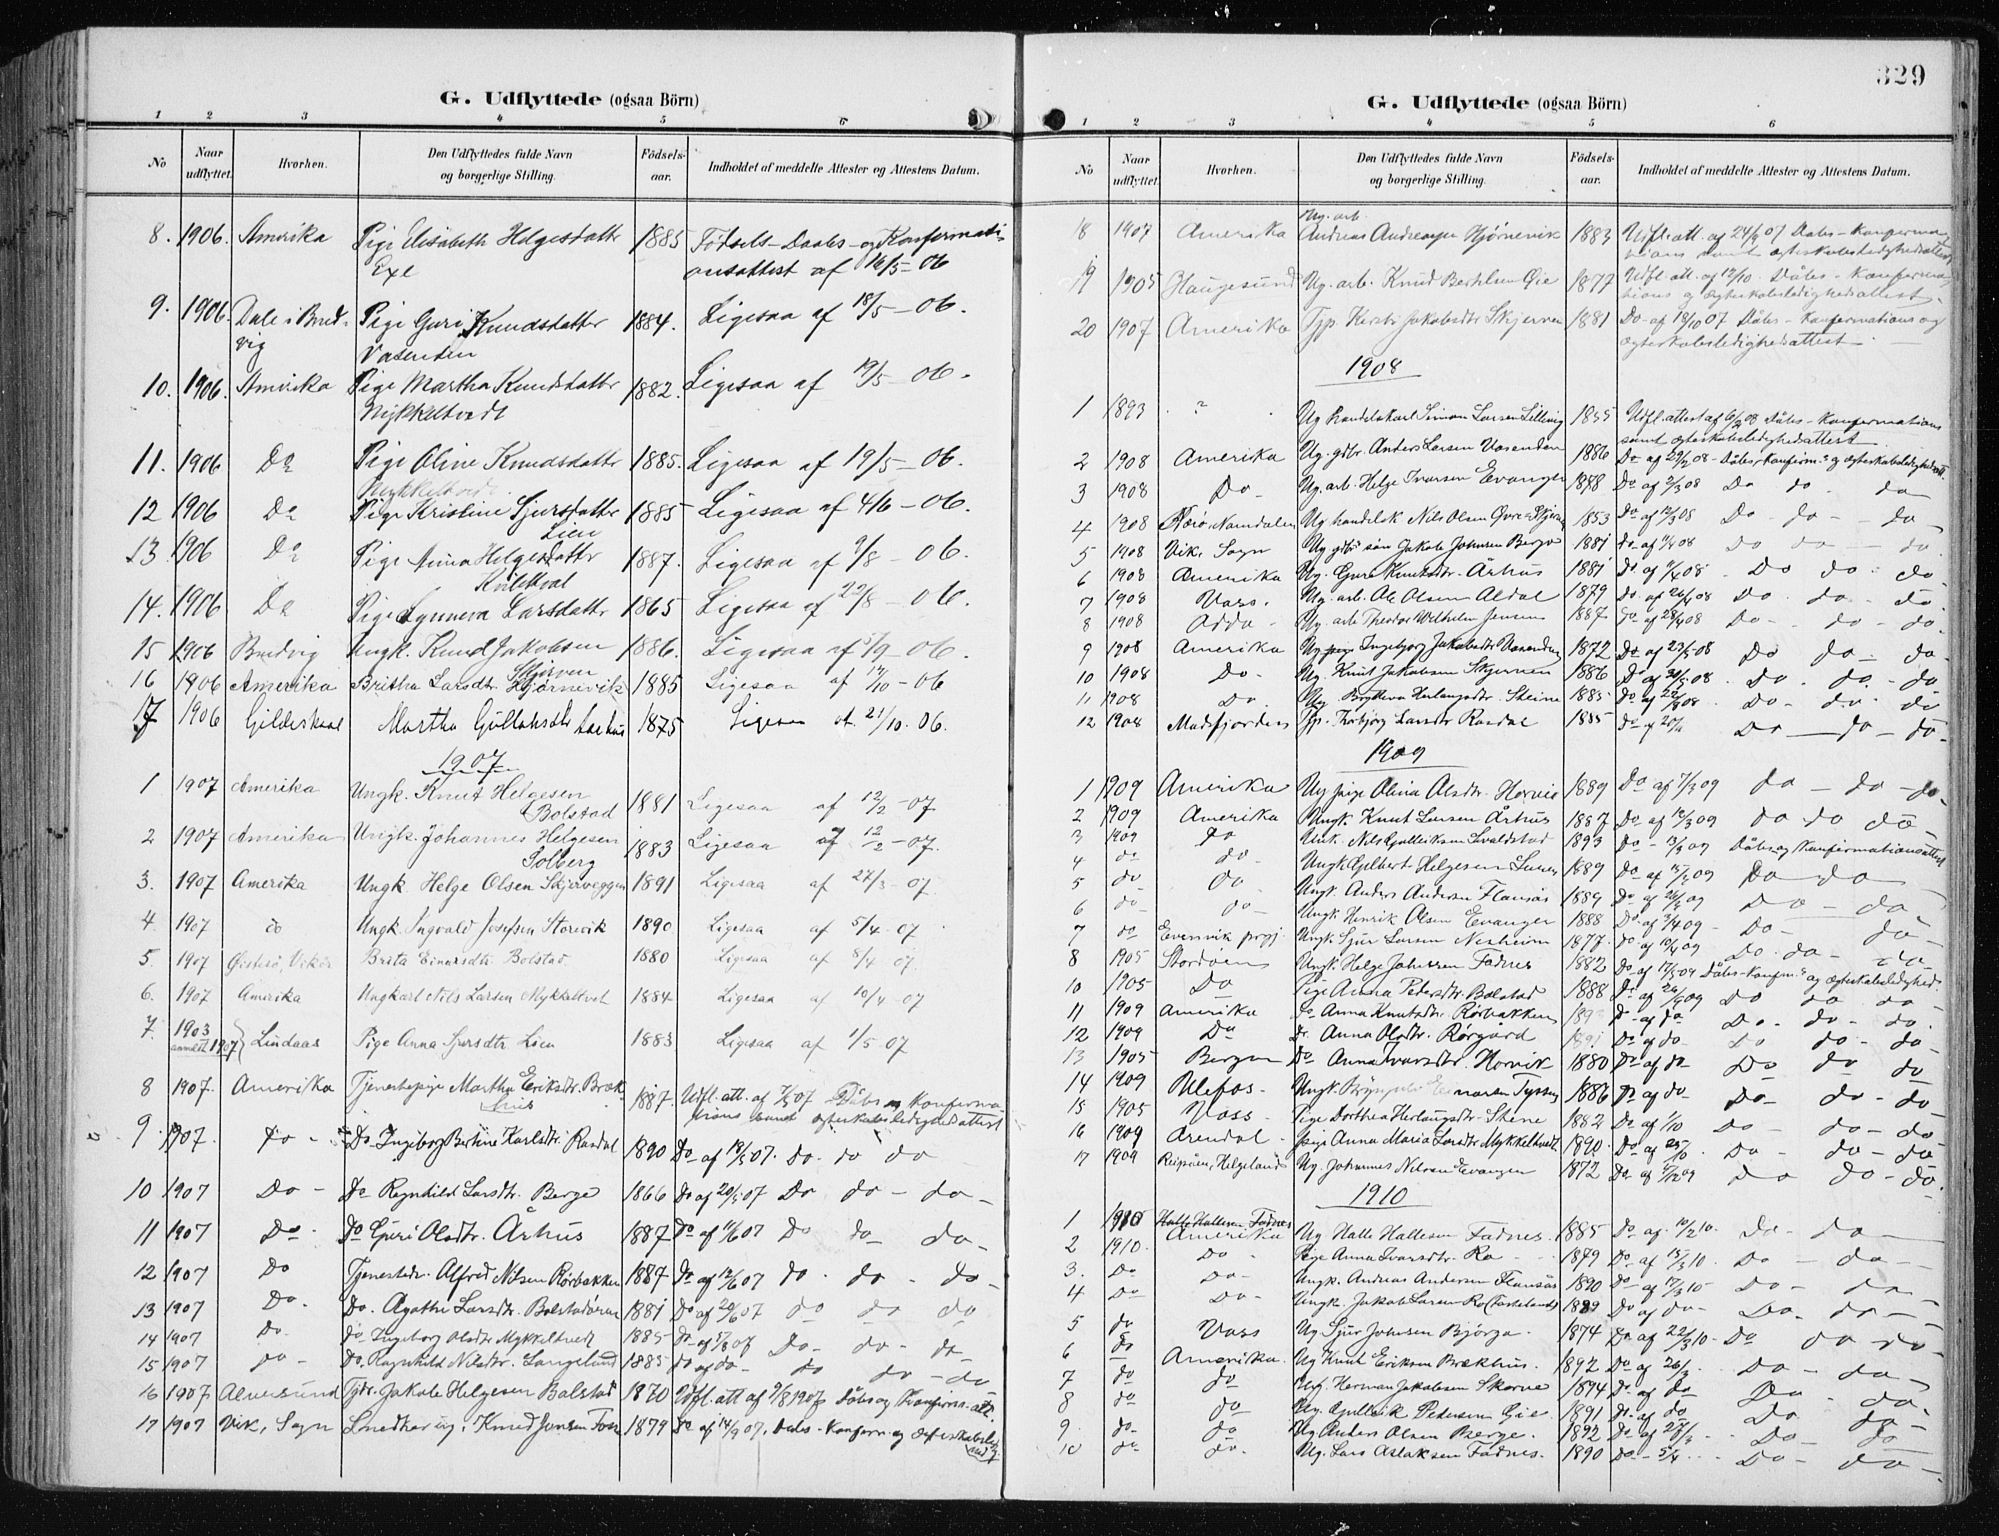 329
G. Udflyttede (ogsaa Börn)
1 2 3 4 5 6
No Naar udflyttet. Hvorhen. Den Udflyttedes fulde Navn og borgerlige Stilling. Födsels-aar. Indholdet af meddelte Attester og Attestens Datum.
8. 1906. Amerika Pige Elisabeth Helgesdatter 1885 Födsels- Daabs- og Konfirmati-
Exe onsattest af 16/5-06
9. 1906. Dale i Brud- Pige Guri Knudsdatter 1884. Ligesaa af 18/5-06.
vig Vasenden
10. 1906. Amerika Pige Martha Knudsdatter 1882. Ligesaa af 19/5-06.
Mykkeltvedt
11. 1906 Do Pige Oline Knudsdatter 1885. Ligesaa af 19/5-06.
Mykkeltvedt
12 1906 Do Pige Kristine Sjursdatter 1885 Ligesaa af 4/6-06.
Lien
13. 1906 Do Pige Anna Helgesdatter 1887. Ligesaa af 9/8-06.
14. 1906 Do Pige Synneva Larsdatter 1865 Ligesaa af 22/8-06.
15 1906 Brudvig Ungk. Knud Jakobsen 1886. Ligesaa af 5/9-06.
Skjerven
16 1906 Amerika Britha Larsdtr Hjørnevik 1885 Ligesaa af 12/10-06
17 1906 Gildeskaal Martha Gullaksdtr Aarhus 1875 Ligesaa af 21/10. 06.
1907
1 1907 Amerika Ungk. Knut Helgesen 1881 Ligesaa af 12/2-07
Bolstad
2 1907 Amerika Ungk. Johannes Helgesen 1883 Ligesaa af 12/2-07.
Solberg
3. 1907 Amerika Ungk. Helge Olsen Skjerveggen 1891 Ligesaa af 22/3-07.
4. 1907 do Ungk. Ingvald Josefsen Storevik 1890 Ligesaa af 5/4-07.
5. 1907 Østesø, Vikør Brita Einarsdtr Bolstad 1880 Ligesaa af 8/4 07.
6. 1907 Amerika Ungkarl Nils Larsen Mykkeltvet 1884 Ligesaa af 10/4-07
7. 1903 anmeldt 1907 Lindaas Pige Anna Sjursdtr Lien 1883 Ligesaa af 1/5-07
8 1907. Amerika Tjenestepige Martha Eriksdtr. Bræk- 1887. Udfl. att. af 07 Dåbs- Konfirma-
hus tions samt ægteskabsledighedsattest
9. 1907. Do - Do. Ingeborg Bertine Karlsdtr. Rasdal 1890 Do af 18/5 07. Do. do do
10 1907 Do - Do Ragnhild Larsdtr. Berge 1866 Do af 20/5 07 Do do - do -
11 1907 Do - Do Guri Olsdtr. Århus 1887 Do af 11/6 07 Do do - do -
12 1907 Do Tjenestedr. Alfred Nilsen Rørbakken 1887 Do af 12/6 07 do. do. do -
13 1907 Do. Do. Agathe Larsdtr. Bolstadøren 1881 Do af 20/6 07 do do do
14 1907 Do. Do Ingeborg Olsdtr Mykkeltvedt 1885 Do af 07 Do - do - do -
15 1907 do - Do. Ragnhild Nilsdtr. Langeland 1885 do af do - do do - do
16 1907 Alversund Jakob Helgesen Bolstad 1870 Udfl. att af 9/8 1907 Dåbs og Konfirms. att.
17 1907 Vik, Sogn Snedker ug. Knud Jonsen Foss 1879 Do af 14/9 07. Dåbs- Konfirm- og ægteskabsledig-
G. Udflyttede (ogsaa Börn)
1 2 3 4 5 6
No Naar udflyttet. Hvorhen. Den Udflyttedes fulde Navn og borgerlige Stilling. Födsels-aar. Indholdet af meddelte Attester og Attestens Datum.
Ug. arb.
18 1907 Amerika Andreas Andreasen Hjørnevik 1883 Udfl. att. af 24/9 07 Dåbs- Konfirma-
tions samt ægteskabsledighedsattest
19 1905 Haugesund Ug. arb. Knud Berthelsen Øie 1877 Udfl. att. af 12/10. Dåbs- Konfirma-
tions og ægteskabsledighedsattest.
20 1907 Amerika Jakobsdtr Skjerven 1881 Do af 18/10 07 Dåbs- Konfirmations og
ægteskabsledighedsattest.
1908
1 1893 . ? . Ug handelskarl Simon Larsen Lilling 1855 Udfl. attest af 6/2 08 Dåbs- Konfirmations
samt ægteskabsledighedsattest.
2 1908 Amerika Ug gdbr. Anders Larsen Vasenden 1886 Do af 27/2 08 - Dåbs, Konfirm.s og ægteskabsledighedsatt.
3 1908 Do - Ug. arb. Helge Ivarsen Evanger 1888 Do af 2/3 08 Do do - do
4 1908 Namdalen Ug handelsk Nils Olsen Øvre-Skjerven 1853 Do af 12/3 08 Do. do - do -
5 1908 Vik, Sogn Ug. gdbr søn Jakob Johnsen Berge 1881 do af 08 Do do - do.
6 1908 Amerika Ug. Guro Knutsdtr. Århus 1881 Do af 08. Do do. do.
7 1908 Voss. Ug. arb. Ole Olsen Aldal 1879 Do. af 26/4 08 Do. do. - do.
8 1908 Odda - Ug. arb Theodor Wilhelm Jensen 1887 Do af 28/4 08 Do - do - do -
9 1908 Amerika Ug pige Ingebjorg Jakobsdtr Vasenden 1872 Do af 23/5 08 Do do - do -
10 1908 Do - Ug. Knut Jakobsen Skjerven 1886 Do af 08 Do. do. - do
11 1908 Do Ug Brytteva Herlaugsdtr. Steine 1885 Do af 08 Do - do - do
12 1908 Modfjorden Torbjørg Larsdtr Rasdal 1885 Do af Do - do - do -
1909
1 1909 Amerika Ug pige Olina Olsdtr. Horvei 1889 Do af 7/3 09 do - do - do -
2 1909 Amerika Ungk Knut Larsen Århus 1887 Do af 10/3 09 do do do -
3 1909 Do Unk. Nils Gulleiksen Evaldstad 1893 Do - 13/3 09 Dåbs og Konfirmationsattest
4 do do - Ungk Gilbert Helgesen 1889 Do af 09 Do do
5 do Do Ungk Anders Andersen Flansås 1889 Do af 09 Do - do -
6 do - do - Ungk Henrik Olsen Evanger 1888 Do af 3/4 09 - Do - do -
7 do Evenvik prgj. Ungk. Sjur Larsen Nesheim 1877. do af 10/4 09 Do do - do -
8 1905 Stordøen Ungk. Helge Johnsen Fadnes 1882 Do af 17/5 09 Dåbs- Konfirm.s og ægteskabsledighed.
10 1905 Do Pige Anna Pedersdtr. Bolstad 1888 Do af 09 Do do do -
11 1909 Amerika Do Anna Knutsdtr. Rørbakken Do af do Do - do - do.
12 1909 Do Do Anna Olsdtr. Rørgård 1891 Do af do - Do do - do -
13 1905 Bergen Do Anna Ivarsdtr. Horvik 1880 Do af do Do do do
14 1909 Ulefos - Ungk. Tyssen 1886 Do af do Do - do - do -
15 1905 Voss. Pige Dorthea Herlaugsdtr. Stene 1882 Do af 1/10 Do - do - do -
16 1909 Arendal - Pige Anna Maria Larsdtr Mykkeltvedt 1890. Do af 23/10 Do - do - do
17 1909 Helgeland Ug. Johannes Nilsen Evanger 1872 Do af 09 Do do - do -
1910
1 1910 Halle Hallesen Fadnes
Amerika Ug Halle Hallesen Fadnes. 1885 Do af. 10/2 10. Do - do
2 1910. Do - Pige Anna Ivarsdtr. Ro 1879 Do. af 13/3 10. Do - do -
3. Do Do - Ungk. Andreas Andersen Flansås 1890 Do af 17/3 10 - Do - do -
4 Do - Do - Ungk. Jakob Larsen Ro 1889 Do af do - Do. do -
5 do Voss Ug Sjur Johnsen Bjørge. 1874 Do af 22/3 10 - Do do do -
6 do Amerika. Ug Knut Eriksen Brækhus. 1892 Do af 26/3 Do - do -
7 do do Herman Jakobsen Skorve 1894 Do af do Do do.
8 do do Ug. Gulleik Pedersen Øie. 1891 Do af do Do do
9 do - do Ug Anders Olsen Berge. 1892 Do af 28/3 Do - do
10 do do - Ug. Lars Aslaksen Fadnes. 1890 Do - 5/4 Do - do -